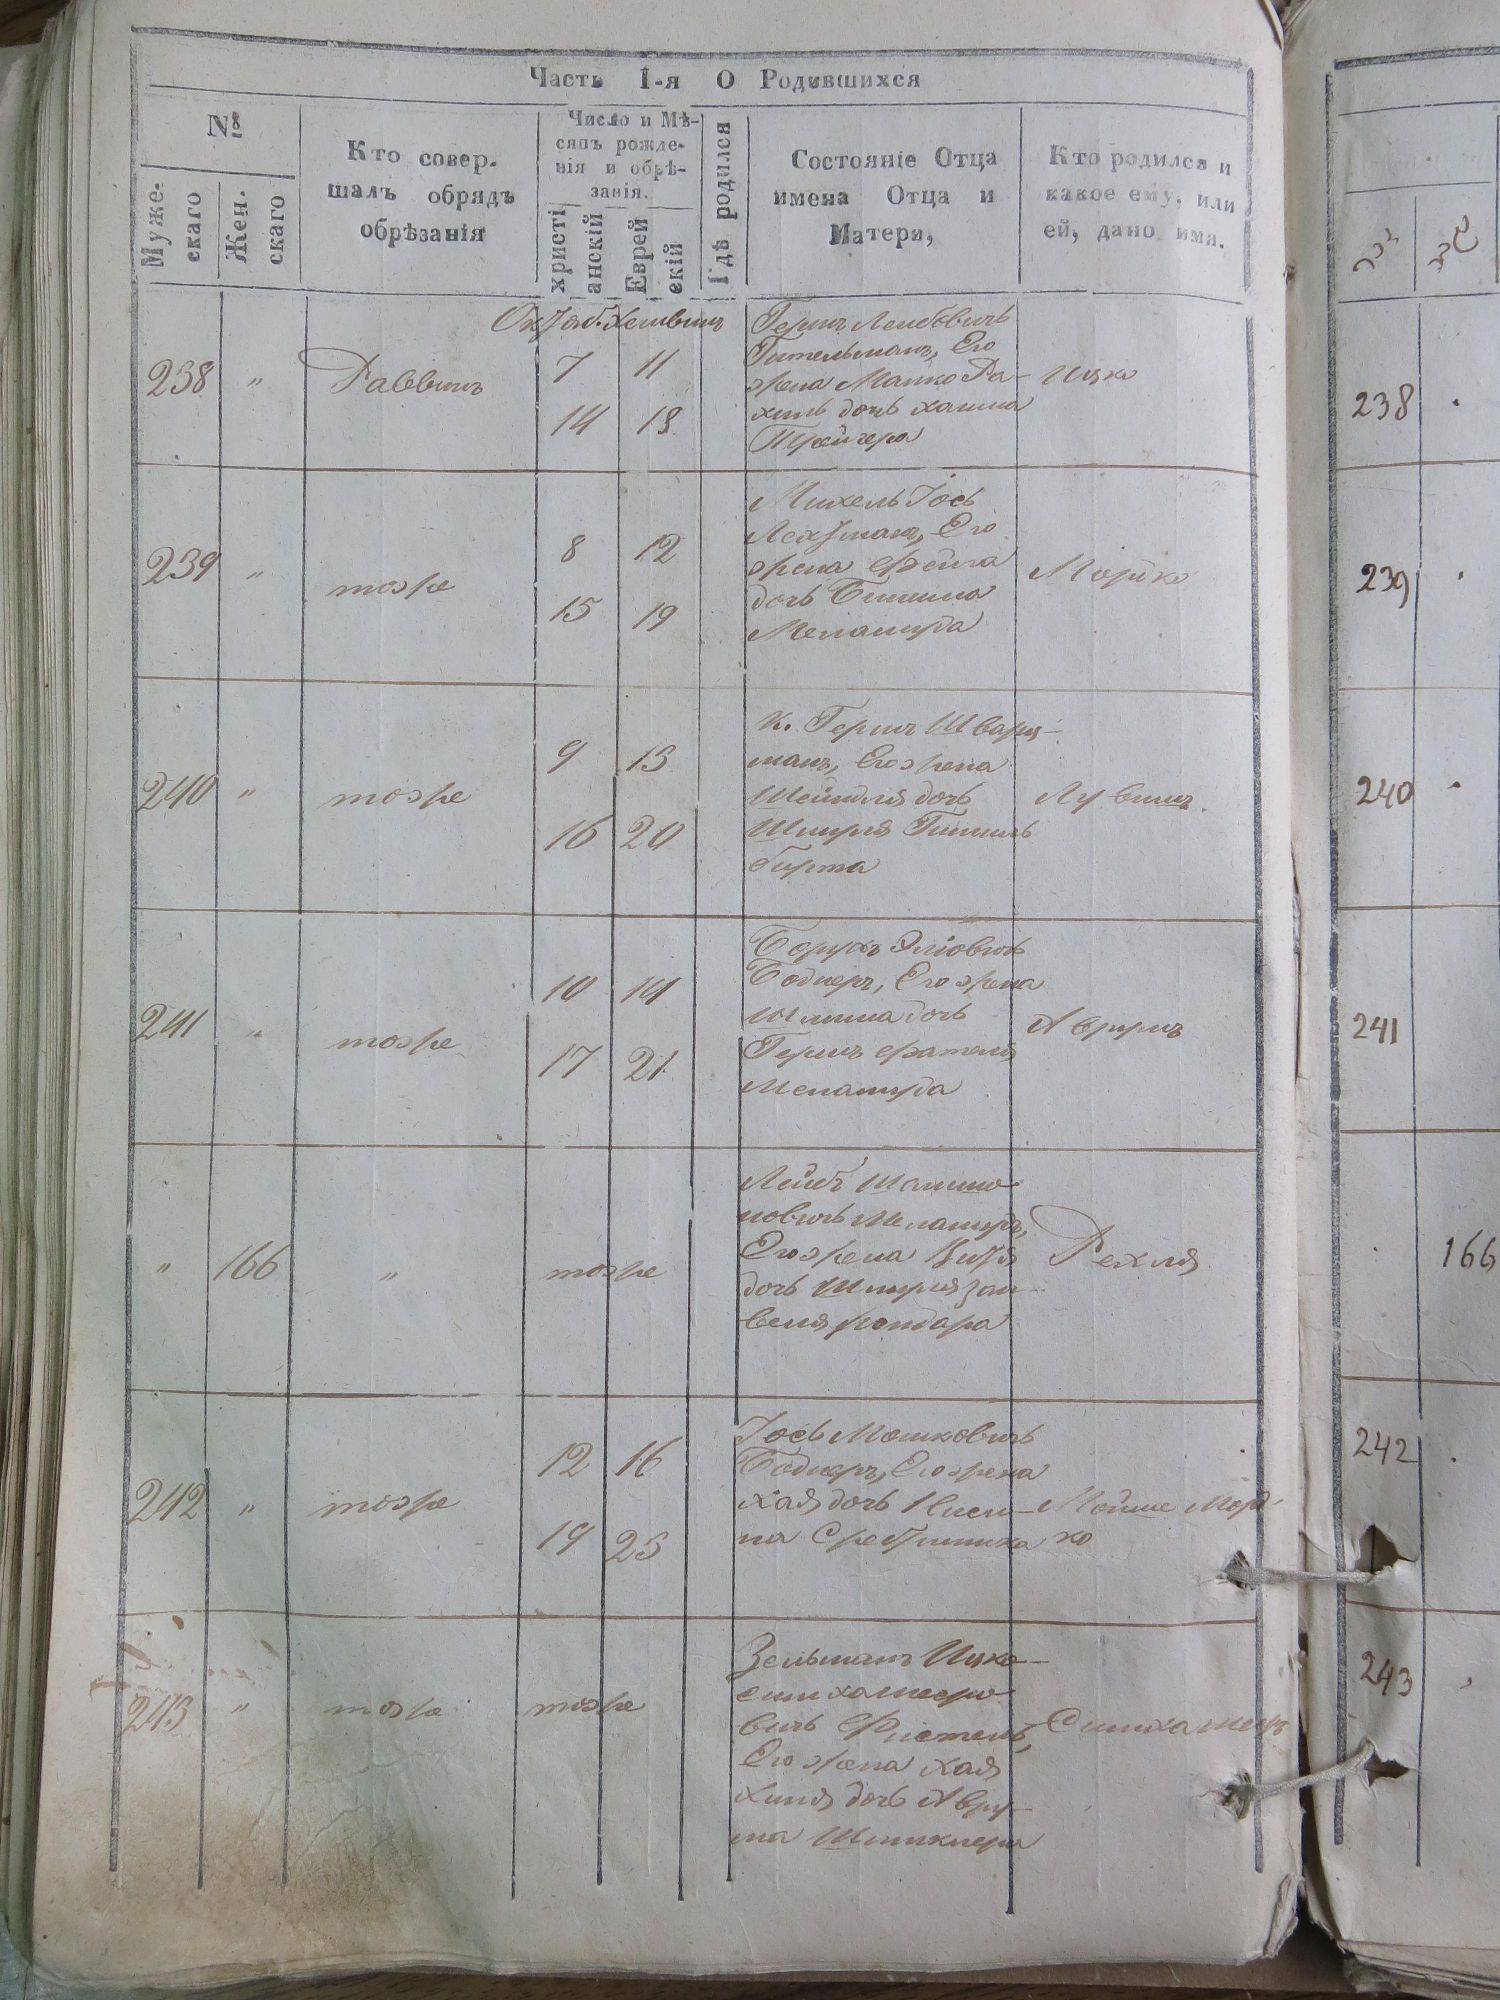 Часть I-я О Родившихся
№
Муже-
скаго
Жен.
скаго
Кто совер-
шалъ обрядъ
обрѣзанія
Число и Мѣ-
сяцъ рожде-
нія и обрѣ-
занія.
христі
анскій
Еврей
скій
Гдѣ родился
Состояніе Отца
имена Отца и
Матери,
Кто родился и
какое ему, или
ей, дано имя.
238 " Раввинъ
7 11
14 18
Гершъ Лейбовичъ
Гительманъ, Его
жена Малко Ра-
хиль дочь хаима
Ицко
239 " тоже
8 12
15 19
Михель Іось
Его
жена Фейга
дочь
Меламуда
Мошко
240 " тоже
9 13
16 20
к. Гершъ Шварц-
манъ, Его жена
Шейндля дочь
Шмуля Гитель
241 " тоже
10 14
17 21
Борухъ Эліовичъ
Боднеръ, Его жена
дочь
Гершъ
Меламуда
Аврумъ
" 166 " тоже
Лейбъ
новичъ Меламудъ,
Его жена
дочь Шмуля Зай-
веля
Рехля
242 " тоже
12 16
19 23
Іось Мошковичъ
Боднеръ, Его жена
хая дочь Ниси-
на
Мойше Морд-
ко
243 " тоже тоже
Зельманъ Ицко-
симхамееро-
вичъ
Его жена хая
дочь Авру-
ма
Симха Меер
238
239
240
241
166
242
243